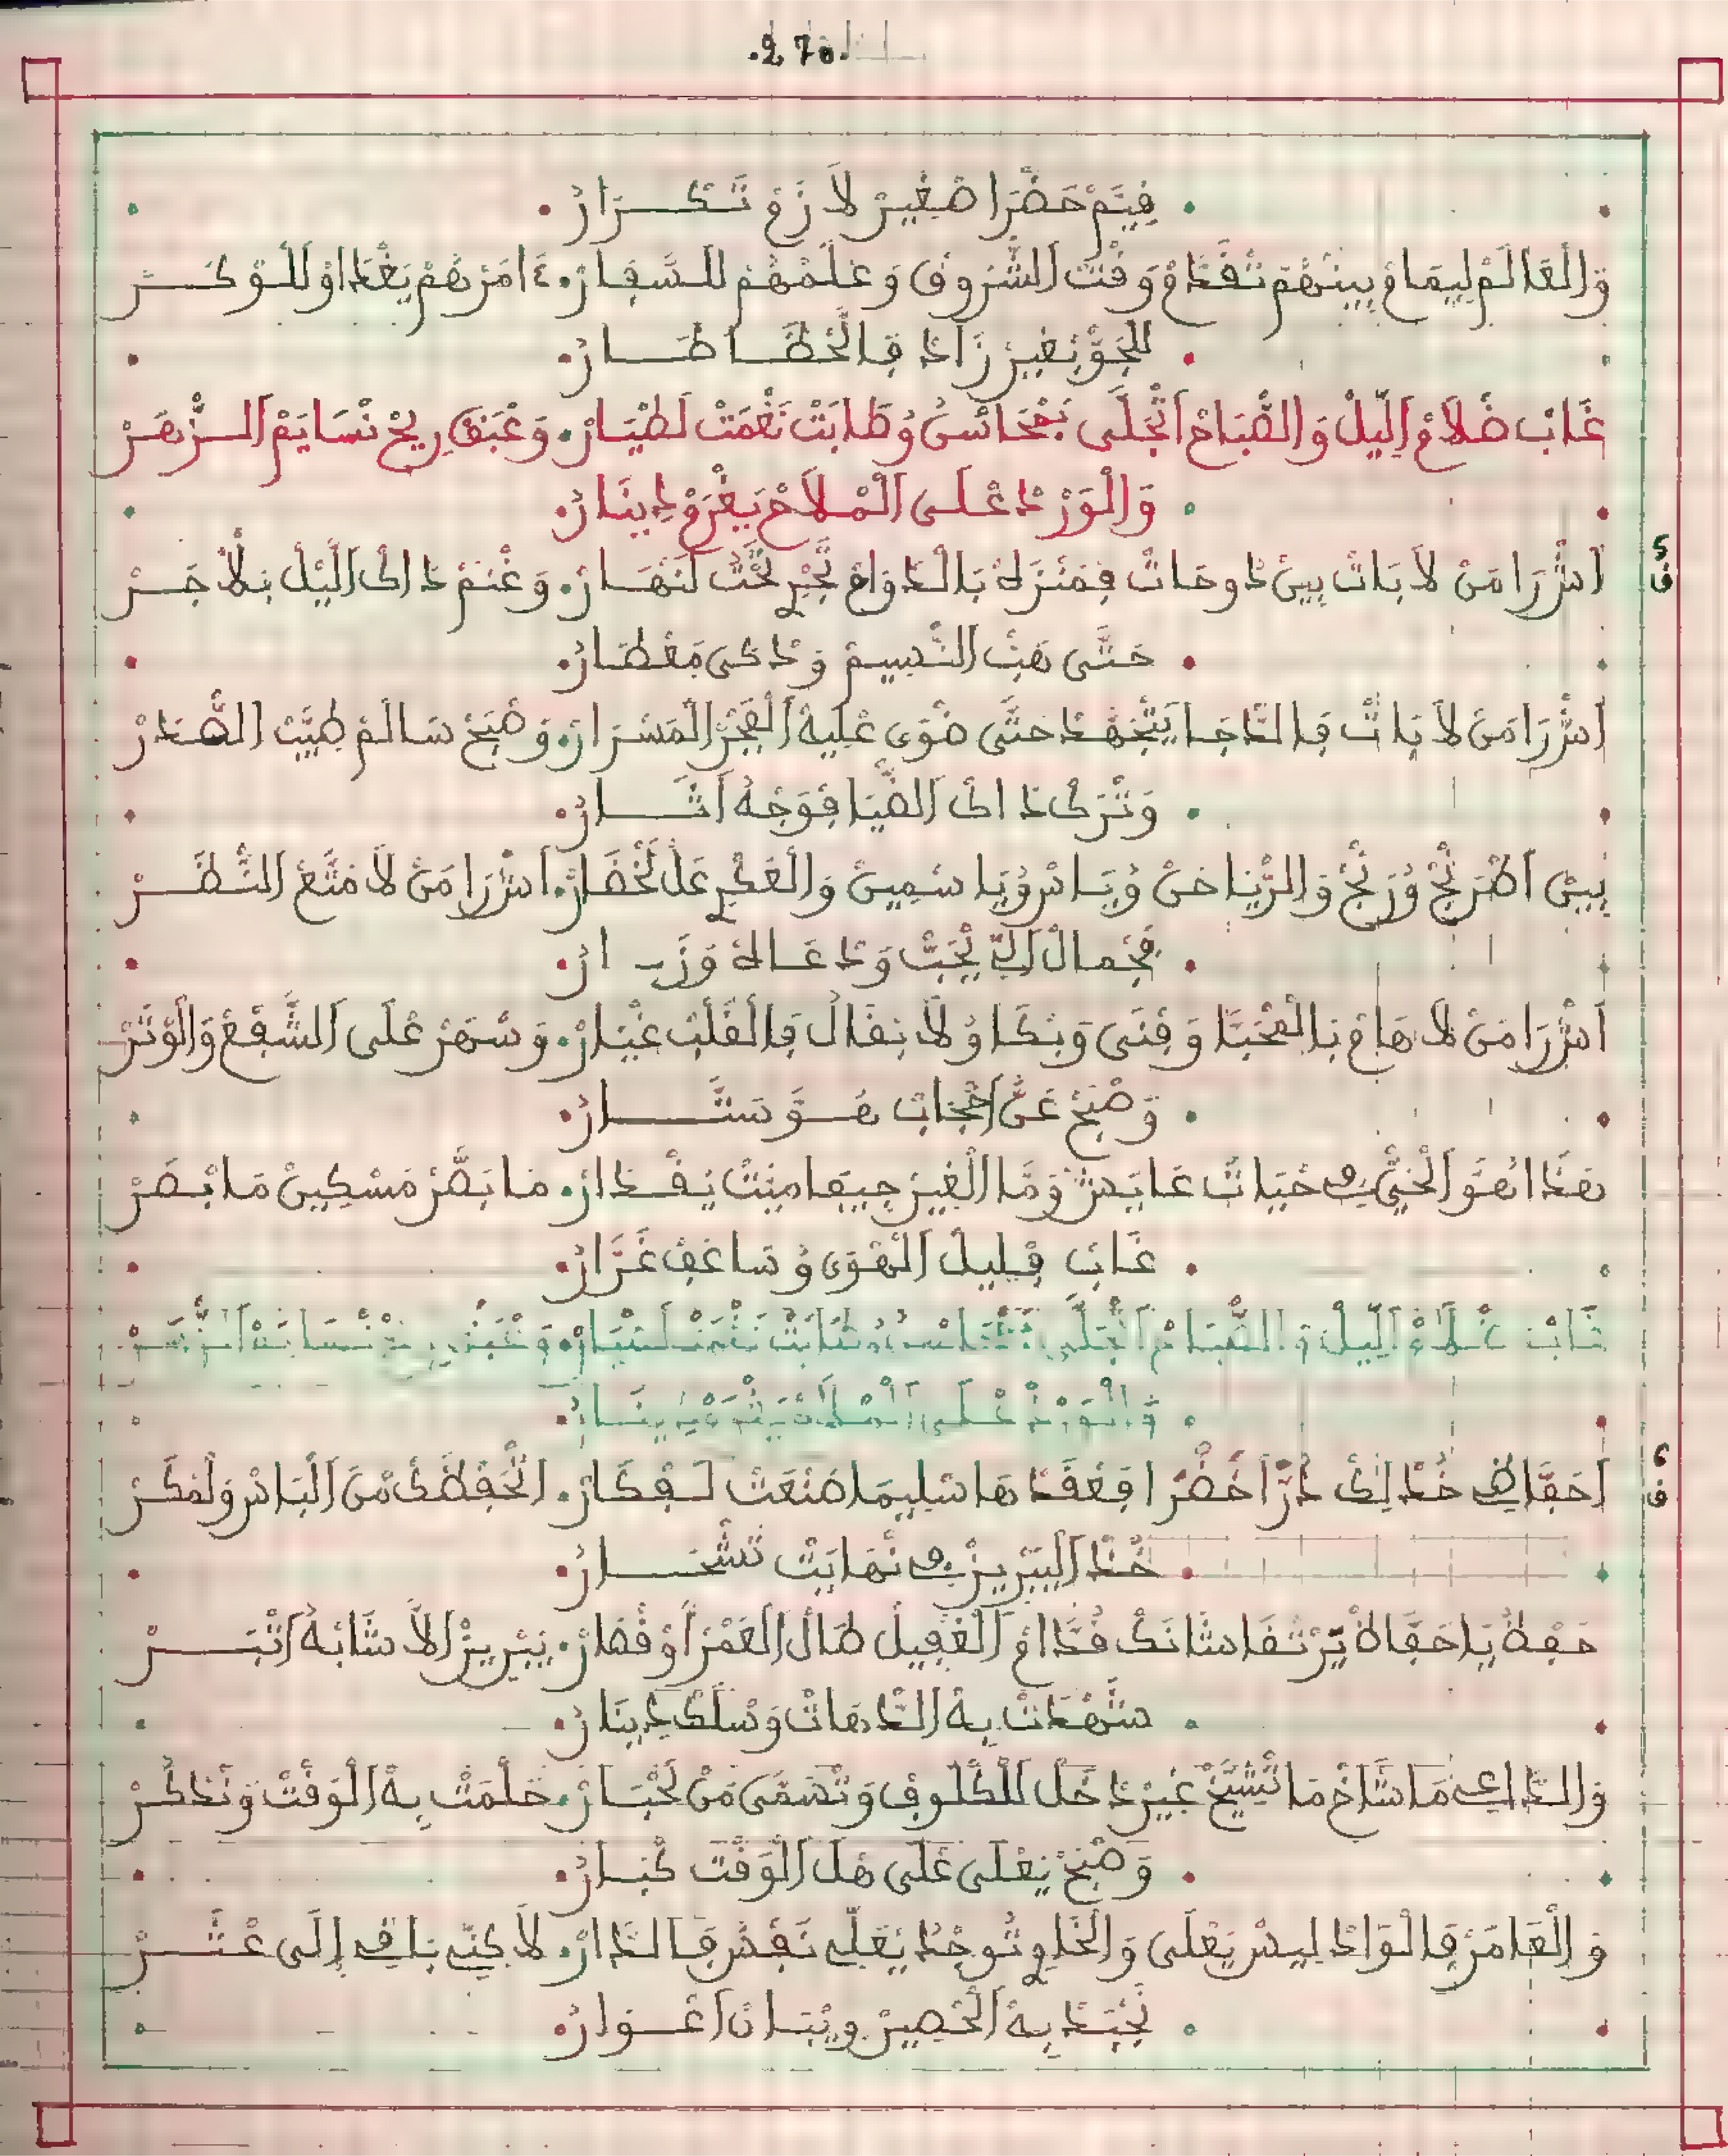 .270.
فِيَّمْ حَضْرَا صْغِيرْ لاَ زَمْ تَكْرَارْ
وَالْعَالَمْ لِيمَامْ بِينْهُمْ تْقَدَّمْ وَوَقْتْ الشّْرُوقْ وَعْلَمْهُمْ لَلسَّفِارْ. ءَامَرْهُمْ يَغْدَاوْ لَلْوكَرْ
لَلْجَوّْ بْغِيرْ زَادْ فَالْخْطَا طَارْ.
غَابْ ضْلاَمْ اللِّيلْ وَالصّْبَاحْ اَنْجْلَى بَمْحَاسْنُ وُطَابَتْ نَغْمَتْ لَطْيَارْ. وَعْبَقْ رِيحْ نْسَايَمْ الزّْهَرْ
وَالْوَرْدْ عْلَى الْمْلاَحْ يَغْرَمْ دِينَارْ.
اَشْ رَا مَنْ لاَ بَاتْ بِينْ دُوحَاتْ فِمْنَزَهْ بَالدّْوَامْ تَجْرِ تَحْتْ لَنْهَارْ. وَغْنَمْ ذَاكْ اللِّيلْ بْلاَ جَرْ
حَتَّى هَبّْ النّْسِيمْ وَدْكَى مَعْطَارْ.
اَشْ رَا مَنْ لاَ بَاتْ فَالدّْجَا يَتْجَهَّدْ حَتَّى ضْوَى عْلِيهْ الْفْجَرْ الْمَسْرَارْ. وَصْبَحْ سَالَمْ طِيَّبْ الصّْدَرْ
وَتْرَكْ ذَاكْ الضّْيَا فْوَجْهُ اَثَارْ.
بِينْ اَطْرَنْجْ وُرَنْجْ وَالرّْيَاحَنْ وُيَاسْ وُيَاسْمِينْ وَالْعَكْرِ عَلْ لَخْضَارْ. اَشْ رَا مَنْ لاَ مَتَّعْ النّْظَرْ
فَجْمَالْ اللِّي يْحَبّْ وَدْعَاهْ وَزَارْ.
اَشْ رَا مَنْ لاَ هَامْ بَالْمْحَبَّا وَفْنَى وَبْكَا وُلاَ بْقَالُ فَالْقَلْبْ غْيَارْ. وَسْهَرْ عْلَى الشّْفَعْ وَالْوْتَرْ
وَصْبَحْ عَنُّ اَحْجَابْ هُوَّ سَتَّارْ.
هَذَا هُوَّ الْحَيّْ فِي حْيَاتْ عَايَشْ وَمَّا الْغِيرْ جِيفَا مِيْتْ يُقْدَارْ. مَا بَصَّرْ مَسْكِينْ مَا بْصَرْ
غَابْ قْلِيلْ الْهْوَى وُسَاعَفْ غَرَّارْ.
غَابْ ضْلاَمْ اللِّيلْ وَالصّْبَاحْ اَنْجْلَى بَمْحَاسْنُ وُطَابَتْ نَغْمَتْ لَطْيَارْ. وَعْبَقْ رِيحْ نْسَايَمْ الزّْهَرْ
وَالْوَرْدْ عْلَى الْمْلاَحْ يَغْرَمْ دِينَارْ.
اَحَفَّاضِي خُدْ لِكْ دُرّْ اَخْضَرْ فِعْقَدْهَا سْلِيمَا صَنْعَتْ لَفْكَارْ. اتْحَفْظَكْ مْنْ الْبَاسْ وَلْمَكَرْ
خُدْ اَلِبْرِيزْ فِي نْهَايَتْ تَشْحَارْ.
حَفْظُ يَا حَفَّاظْ يَرْتْفَا شَانَكْ قُدَّامْ الْغْفِيلْ طَالْ الْعْمَرْ اَوْقْصَارْ. يَبْرِيزْ الاَّ شَابَهُ اَتْبَرْ
شَهْدَتْ بِهْ الدّْهَاتْ وَسْلَكْ دِينَارْ.
وَالدَّاعِي مَا شَاخْ مَا تْشَيَّخْ غِيرْ دْخَلْ لَلْكْلُوفْ وَتْسَمَّى مَنْ لَحْبَارْ. حَلْمَتْ بِهْ الْوَقْتْ وَنَدْكُرْ
وَصْبَحْ يَعْلَى عْلَى هْلْ الْوَقْتْ كْبَارْ.
وَالْعَامَرْ فَالْوَادْ لِيسْ يَعْلَى وَالْخَاوِي تُوجْدُ يْعَلِّي نَفْسُ فَالدَّارْ. لاَكِنِّي بَاقِي إِلَى عْتَرْ
نَجْبَدْ بِهْ الْحْصِيرْ وِيْبَانْ اَعْوَارْ.